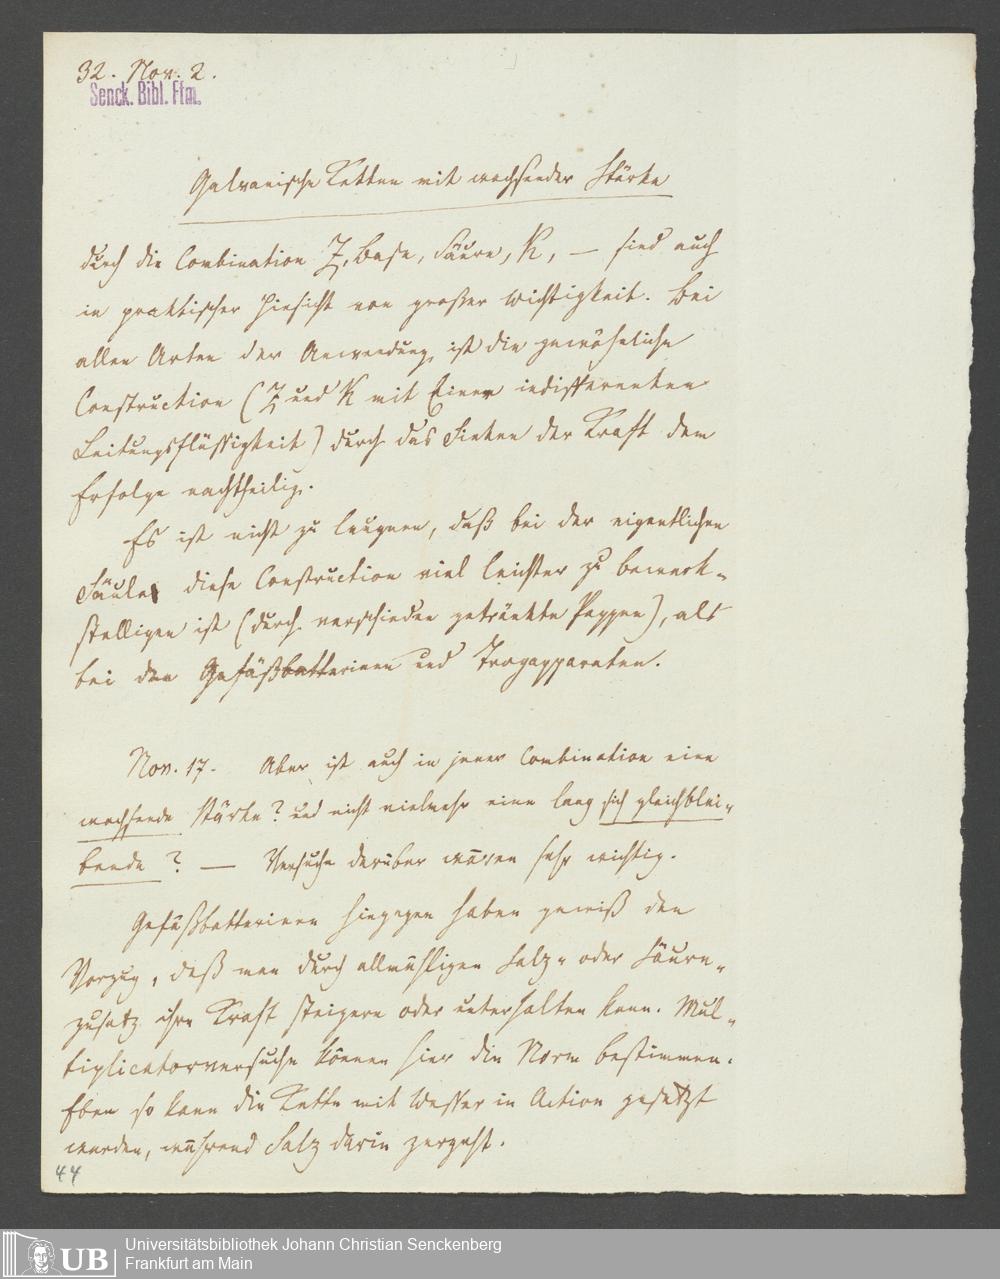 32. Nov. 2.
Senck. Bibl. Ffm.
Galvanische Ketten mit wachsender Stärke
durch die Combination Z, Base, Säure, K, — sind auch
in praktischer Hinsicht von großer Wichtigkeit. Bei
allen Arten der Anwendung, ist die gewöhnliche
Construction (Z und K mit Einer indifferenten
Leitungsflüssigkeit) durch das Sinken der Kraft dem
Erfolge nachtheilig.
Es ist nicht zu leugnen, daß bei der eigentlichen
Säule diese Construction viel leichter zu bewerk-
stelligen ist (durch verschieden getränkte Pappen), als
bei den Gefäßbatterieen und Trogapparaten.
Nov. 17. Aber ist auch in jener Combination eine
wachsende Stärke? und nicht vielmehr eine lang sich gleichblei-
bende? — Versuche darüber wären sehr wichtig.
Gefäßbatterieen hingegen haben gewiß den
Vorzug, daß man durch allmähligen Salz- oder Säure-
zusatz ihre Kraft steigern oder unterhalten kann. Mul-
tiplicatorversuche können hier die Norm bestimmen.
Eben so kann die Kette mit Wasser in Action gesetzt
werden, während Salz darin zergeht.
44
UB
Universitätsbibliothek Johann Christian Senckenberg
Frankfurt am Main